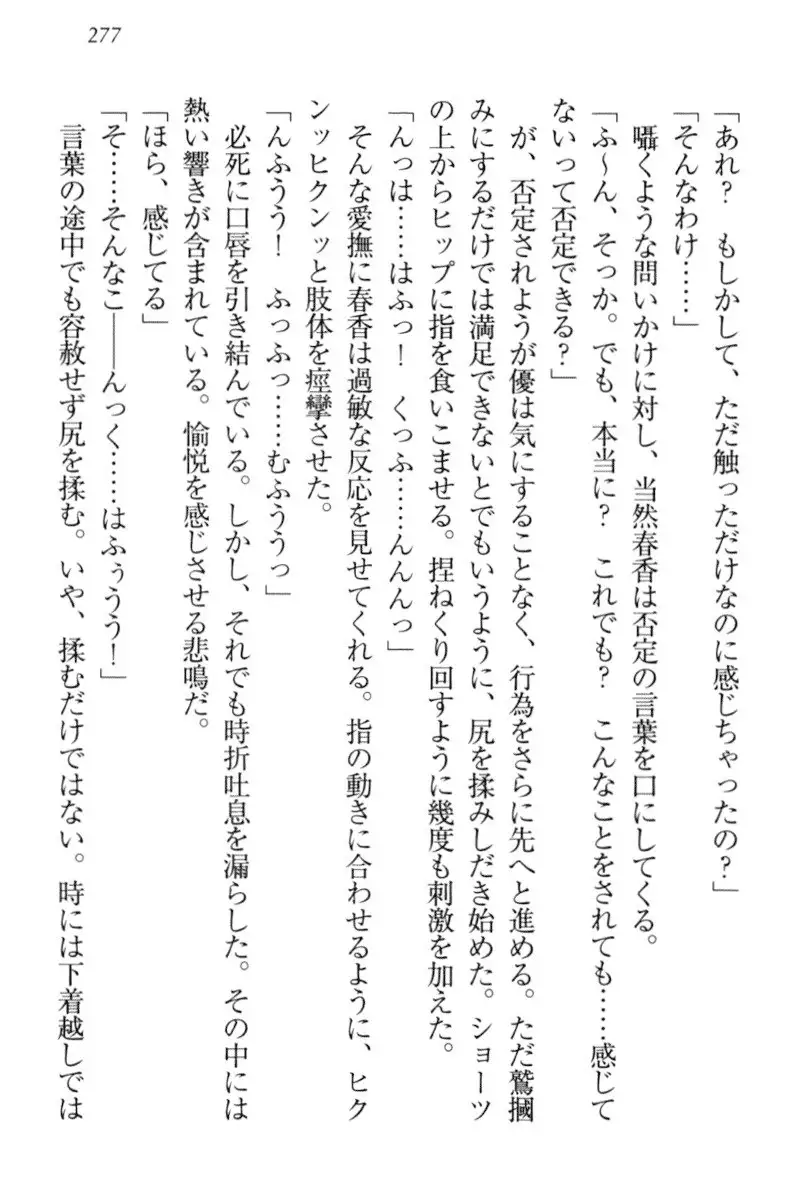 277
「あれ？　もしかして、ただ触っただけなのに感じちゃったの？」
「そんなわけ……」
　囁くような問いかけに対し、当然春香は否定の言葉を口にしてくる。
「ふ～ん、そっか。でも、本当に？　これでも？　こんなことをされても……感じて
ないって否定できる？」
　が、否定されようが優は気にすることなく、行為をさらに先へと進める。ただ鷲摑
みにするだけでは満足できないとでもいうように、尻を揉みしだき始めた。ショーツ
の上からヒップに指を食いこませる。捏ねくり回すように幾度も刺激を加えた。
「んっは……はふっ！　くっふ……んんんっ」
　そんな愛撫に春香は過敏な反応を見せてくれる。指の動きに合わせるように、ヒク
ンッヒクンッと肢体を痙攣させた。
「んふうう！　ふっふっ……むふううっ」
　必死に口唇を引き結んでいる。しかし、それでも時折吐息を漏らした。その中には
熱い響きが含まれている。愉悦を感じさせる悲鳴だ。
「ほら、感じてる」
「そ……そんなこ――んっく……はふぅうう！」
　言葉の途中でも容赦せず尻を揉む。いや、揉むだけではない。時には下着越しでは